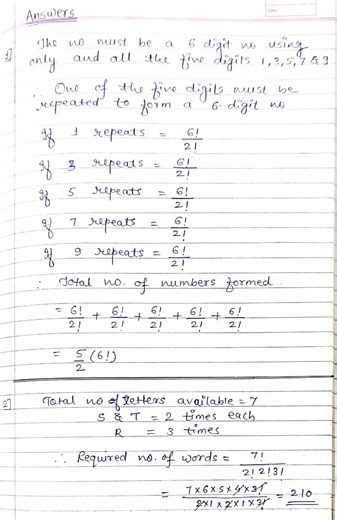 Answers
1] The no must be a 6 digit no using
only and all the five digits 1, 3, 5, 7 & 9
∴ One of the five digits must be
repeated to form a 6-digit no
If 1 repeats = 6!/2!
If 3 repeats = 6!/2!
If 5 repeats = 6!/2!
If 7 repeats = 6!/2!
If 9 repeats = 6!/2!
∴ Total no. of numbers formed.
= 6!/2! + 6!/2! + 6!/2! + 6!/2! + 6!/2!
= 5/2 (6!)
2] Total no of letters available = 7
S & T = 2 times each
R = 3 times
∴ Required no. of words = 7!/2!2!3!
= 7×6×5×4×3!/2×1×2×1×3! = 210